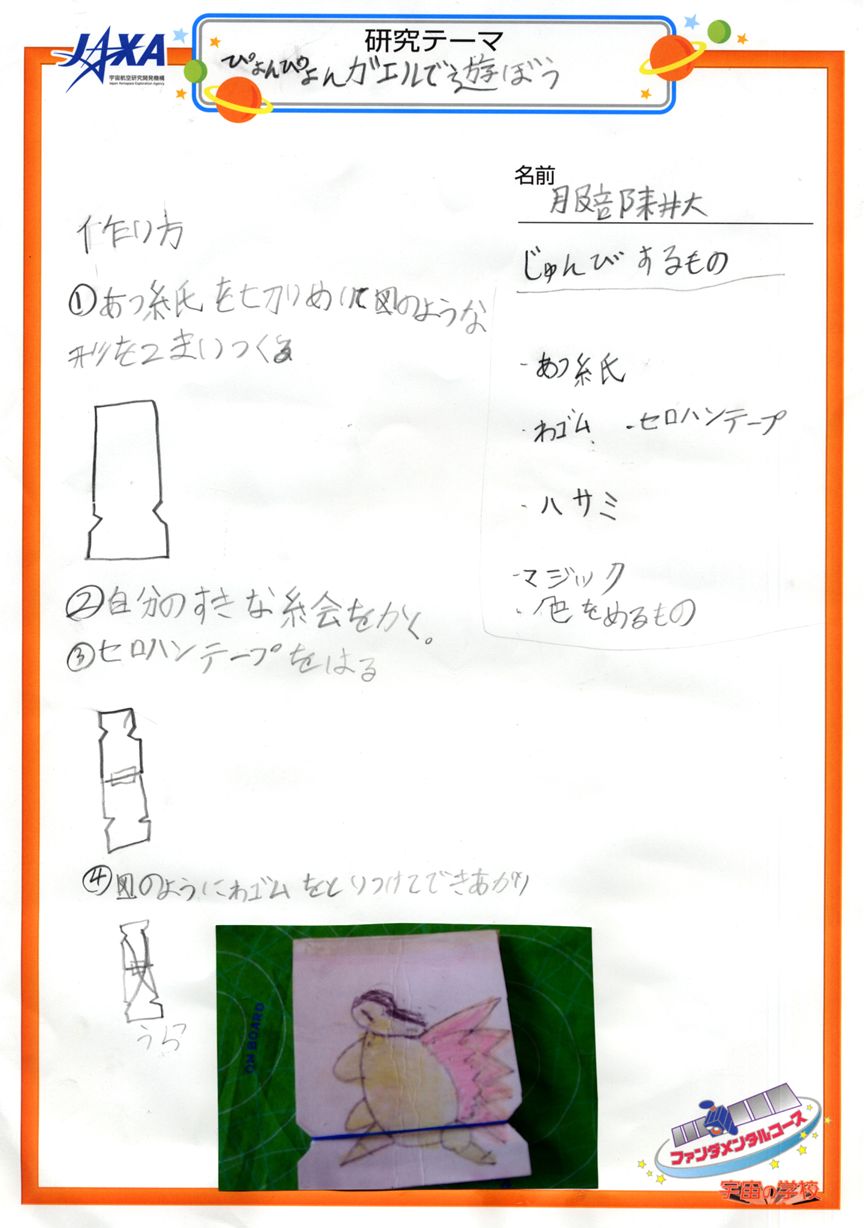 JAXA
宇宙航空研究開発機構
Japan Aerospace Exploration Agency
研究テーマ
ぴょんぴょんガエルで遊ぼう
名前
服部
作り方
じゅんびするもの
①あつ紙を切りぬいて図のような
形を2まいつくる
・あつ紙
・わゴム ・セロハンテープ
・ハサミ
・マジック
・色をぬるもの
②自分のすきな絵をかく。
③セロハンテープをはる
④図のようにわゴムをとりつけてできあがり
うら
ON BOARD
ファンダメンタルコース
宇宙の学校